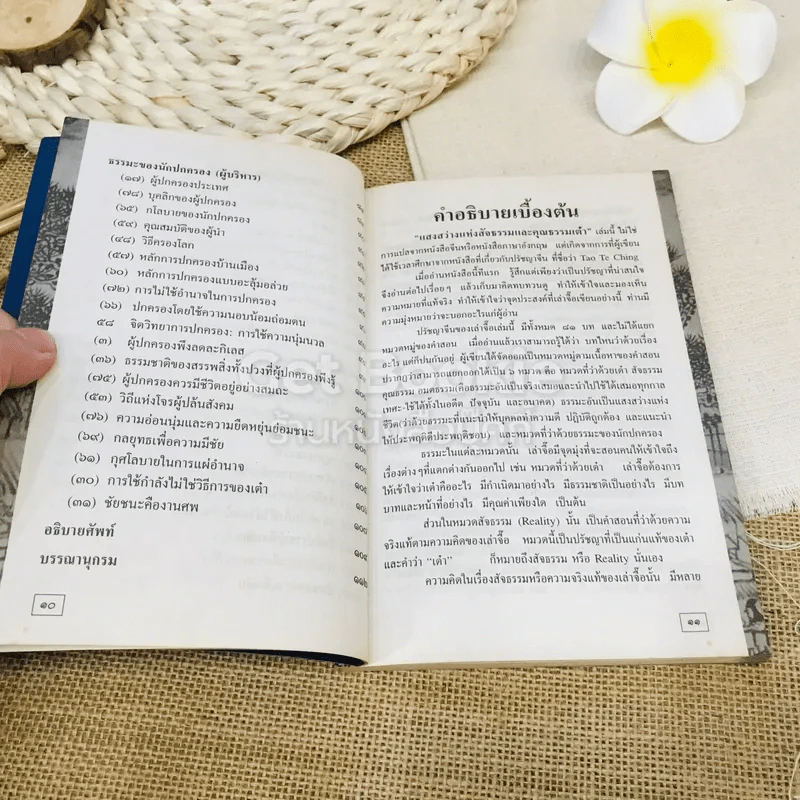 ธรรมะของนักปกครอง (ผู้บริหาร)
(๑๗) ผู้ปกครองประเทศ
(๗๘) บุคลิกของผู้ปกครอง
(๖๕) กโลบายของนักปกครอง
(๕๙) คุณสมบัติของผู้นำ
(๔๘) วิธีครองโลก
(๕๗) หลักการปกครองบ้านเมือง
(๖๐) หลักการปกครองแบบอะลุ้มอล่วย
(๗๒) การไม่ใช้อำนาจในการปกครอง
(๖๖) ปกครองโดยใช้ความนอบน้อมถ่อมตน
๕๘ จิตวิทยาการปกครอง: การใช้ความนุ่มนวล
(๓) ผู้ปกครองพึงลดละกิเลส
(๓๖) ธรรมชาติของสรรพสิ่งทั้งปวงที่ผู้ปกครองพึงรู้
(๗๕) ผู้ปกครองควรมีชีวิตอยู่อย่างสมถะ
(๕๓) วิถีแห่งโจรผู้ปล้นสังคม
(๗๖) ความอ่อนนุ่มและความยืดหยุ่นย่อมชนะ
(๖๙) กลยุทธเพื่อความมีชัย
(๖๑) กุศโลบายในการแผ่อำนาจ
(๓๐) การใช้กำลังไม่ใช่วิธีการของเต๋า
(๓๑) ชัยชนะคืองานศพ
อธิบายศัพท์
บรรณานุกรม
๑๐
คำอธิบายเบื้องต้น
"แสงสว่างแห่งสัจธรรมและคุณธรรมเต๋า" เล่มนี้ ไม่ใช่
การแปลจากหนังสือจีนหรือหนังสือภาษาอังกฤษ แต่เกิดจากการที่ผู้เขียน
ได้ใช้เวลาศึกษาจากหนังสือที่เกี่ยวกับปรัชญาจีน ที่ชื่อว่า Tao Te Ching
เมื่ออ่านหนังสือนี้ทีแรก รู้สึกแต่เพียงว่าเป็นปรัชญาที่น่าสนใจ
จึงอ่านต่อไปเรื่อยๆ แล้วเก็บมาคิดทบทวนดู ทำให้เข้าใจและมองเห็น
ความหมายที่แท้จริง ทำให้เข้าใจว่าจุดประสงค์ที่เล่าจื๊อเขียนอย่างนี้ ท่านมี
ความมุ่งหมายว่าจะบอกอะไรแก่ผู้อ่าน
ปรัชญาจีนของเล่าจื๊อเล่มนี้ มีทั้งหมด ๘๑ บท และไม่ได้แยก
หมวดหมู่ของคำสอน เมื่ออ่านแล้วเราสามารถรู้ได้ว่า บทไหนว่าด้วยเรื่อง
อะไร แต่ก็ปนกันอยู่ ผู้เขียนได้จัดออกเป็นหมวดหมู่ตามเนื้อหาของคำสอน
ปรากฏว่าสามารถแยกออกได้เป็น ๖ หมวด คือ หมวดที่ว่าด้วยเต๋า สัจธรรม
คุณธรรม อมตธรรม(คือธรรมะอันเป็นจริงเสมอและนำไปใช้ได้เสมอทุกกาล
เทศะ-ใช้ได้ทั้งในอดีต ปัจจุบัน และอนาคต) ธรรมะอันเป็นแสงสว่างแห่ง
ชีวิต(ว่าด้วยธรรมะที่แนะนำให้บุคคลทำความดี ปฏิบัติถูกต้อง และแนะนำ
ให้ประพฤติดีประพฤติชอบ) และหมวดที่ว่าด้วยธรรมะของนักปกครอง
ธรรมะในแต่ละหมวดนั้น เล่าจื๊อมีจุดมุ่งที่จะสอนคนให้เข้าใจถึง
เรื่องต่างๆที่แตกต่างกันออกไป เช่น หมวดที่ว่าด้วยเต๋า เล่าจื๊อต้องการ
ให้เข้าใจว่าเต๋าคืออะไร มีกำเนิดมาอย่างไร มีธรรมชาติเป็นอย่างไร มีบท
บาทและหน้าที่อย่างไร มีคุณค่าเพียงใด เป็นต้น
ส่วนในหมวดสัจธรรม (Reality) นั้น เป็นคำสอนที่ว่าด้วยความ
จริงแท้ตามความคิดของเล่าจื๊อ หมวดนี้เป็นปรัชญาที่เป็นแก่นแท้ของเต๋า
และคำว่า "เต๋า" ก็หมายถึงสัจธรรม หรือ Reality นั่นเอง
ความคิดในเรื่องสัจธรรมหรือความจริงแท้ของเล่าจื๊อนั้น มีหลาย
๑๑